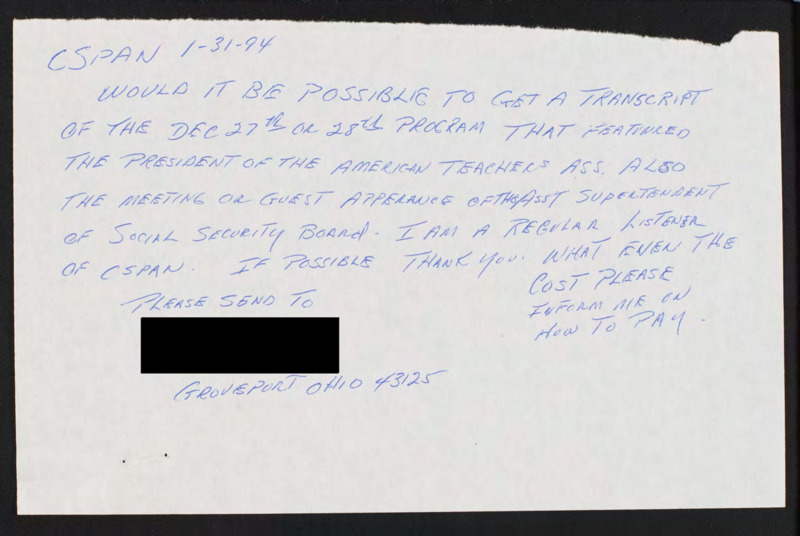 CSPAN 1-31-94
WOULD IT BE POSSIBLIE TO GET A TRANSCRIPT
OF THE DEC 27th OR 28th PROGRAM THAT FEATURED
THE PRESIDENT OF THE AMERICAN TEACHERS ASS. ALSO
THE MEETING OR GUEST APPERANCE OF THE ASST SUPERTENDENT
OF SOCIAL SECURITY BOARD. I AM A REGULAR LISTENER
OF CSPAN. IF POSSIBLE THANK YOU. WHAT EVEN THE
COST PLEASE
INFORM ME ON
HOW TO PAY.
PLEASE SEND TO
GROVEPORT OHIO 43125